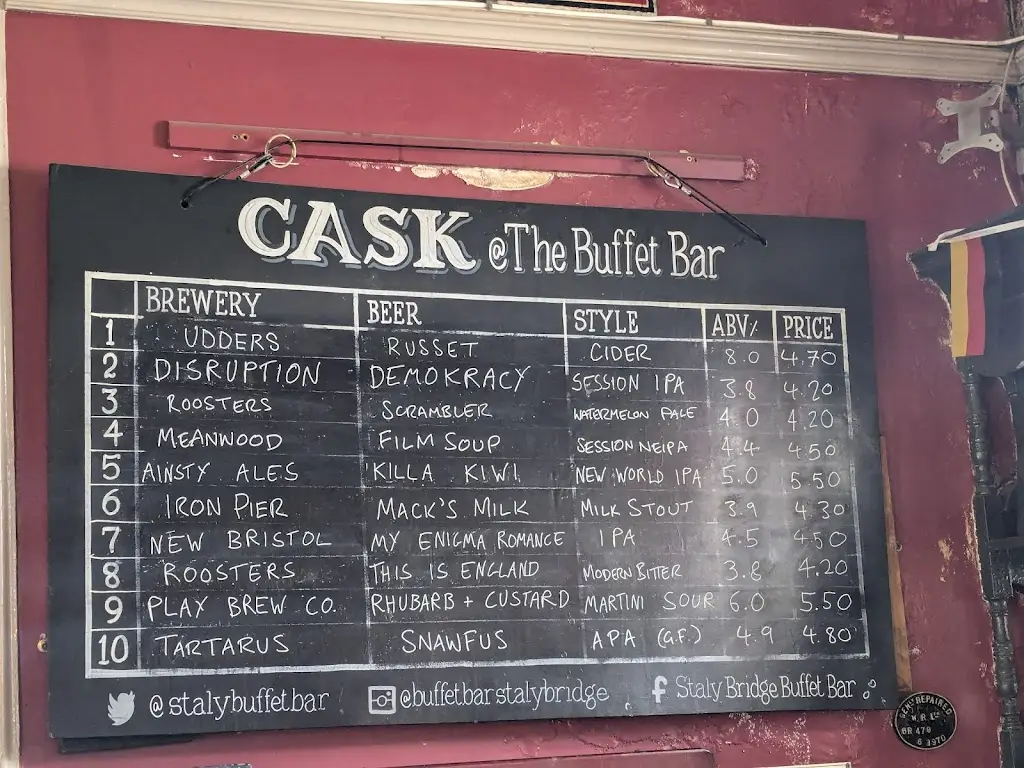 CASK @The Buffet Bar
BREWERY BEER STYLE ABV% PRICE
1 UDDERS RUSSET CIDER 8.0 4.70
2 DISRUPTION DEMOKRACY SESSION IPA 3.8 4.20
3 ROOSTERS SCRAMBLER WATERMELON PALE 4.0 4.20
4 MEANWOOD FILM SOUP SESSION NEIPA 4.4 4.50
5 AINSTY ALES KILLA KIWI NEW WORLD IPA 5.0 5.50
6 IRON PIER MACK'S MILK MILK STOUT 3.9 4.30
7 NEW BRISTOL MY ENIGMA ROMANCE IPA 4.5 4.50
8 ROOSTERS THIS IS ENGLAND MODERN BITTER 3.8 4.20
9 PLAY BREW CO. RHUBARB + CUSTARD MARTINI SOUR 6.0 5.50
10 TARTARUS SNAWFUS APA (G.F.) 4.9 4.80
@stalybuffetbar @buffetbarstalybridge f Staly Bridge Buffet Bar